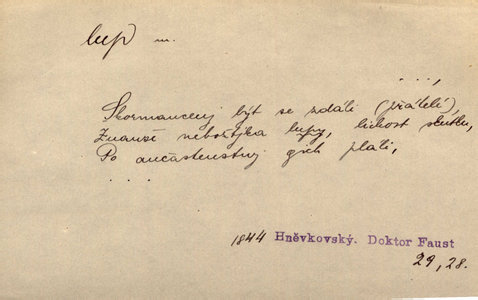 lup m.
. . . ,
Skormanceny být se zdáli (přátelé),
Znavše nebožtjka lupy, lichost skutku,
Po aučastenstwj gich platí,
. . . .
1844 Hněvkovský. Doktor Faust
29, 28.